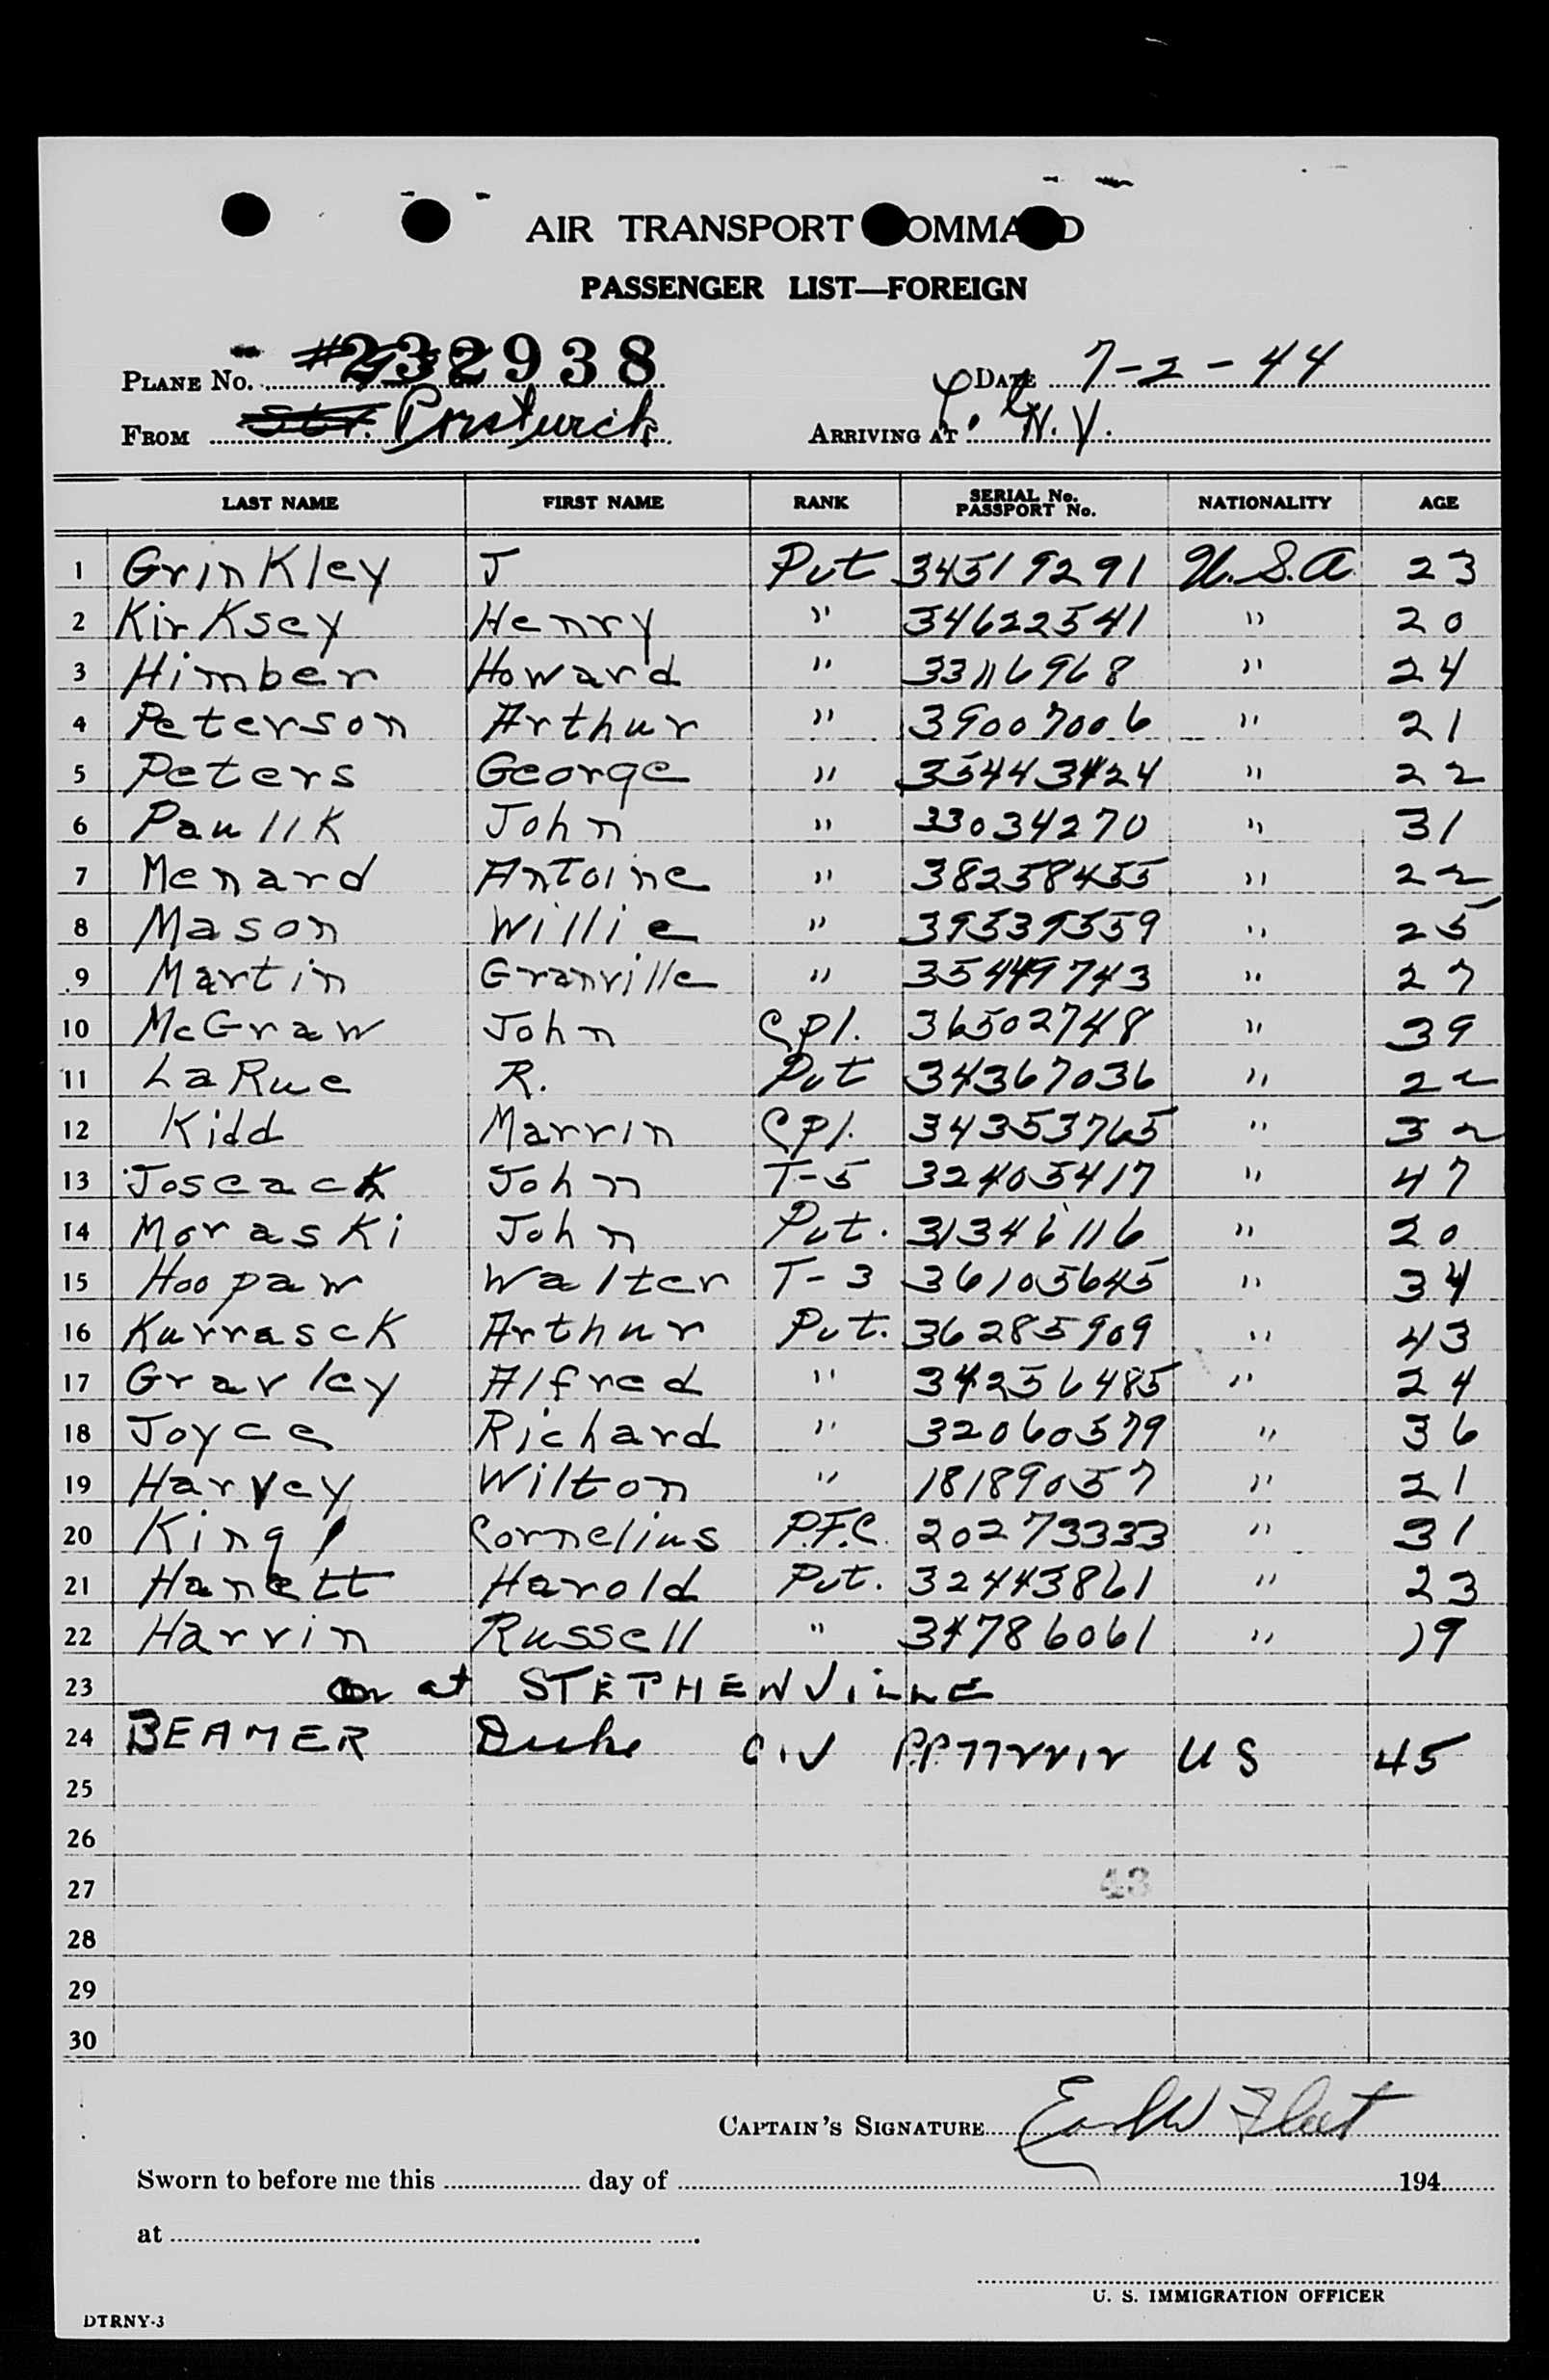 AIR TRANSPORT COMMAND
PASSENGER LIST—FOREIGN
PLANE No. #232938 DATE 7-2-44
FROM Prestwick ARRIVING AT N.Y.
LAST NAME FIRST NAME RANK SERIAL No. PASSPORT No. NATIONALITY AGE
1 Grinkley J Pvt 34519291 U.S.A. 23
2 Kirksey Henry " 34622541 " 20
3 Himber Howard " 33116968 " 24
4 Peterson Arthur " 39007006 " 21
5 Peters George " 35443424 " 22
6 Paulik John " 33034270 " 31
7 Menard Antoine " 38258455 " 22
8 Mason Willie " 39539559 " 25
9 Martin Granville " 35449743 " 27
10 McGraw John Cpl. 36502748 " 39
11 LaRue R. Pvt 34367036 " 22
12 Kidd Marvin Cpl. 34353765 " 32
13 Joseack John T-5 32405417 " 47
14 Moraski John Pvt. 31346116 " 20
15 Hoopaw Walter T-3 36105645 " 34
16 Kurrasck Arthur Pvt. 36285909 " 43
17 Gravley Alfred " 34256485 " 24
18 Joyce Richard " 32060579 " 36
19 Harvey Wilton " 18189057 " 21
20 King Cornelius P.F.C. 20273333 " 31
21 Hanett Harold Pvt. 32443861 " 23
22 Harvin Russell " 34786061 " 19
23 on at STEPHENVILLE
24 BEAMER Duke CIV P.P. 7722212 US 45
25
26
27 43
28
29
30
CAPTAIN'S SIGNATURE Earl W Fleet
Sworn to before me this day of 194
at
U. S. IMMIGRATION OFFICER
DTRNY-3